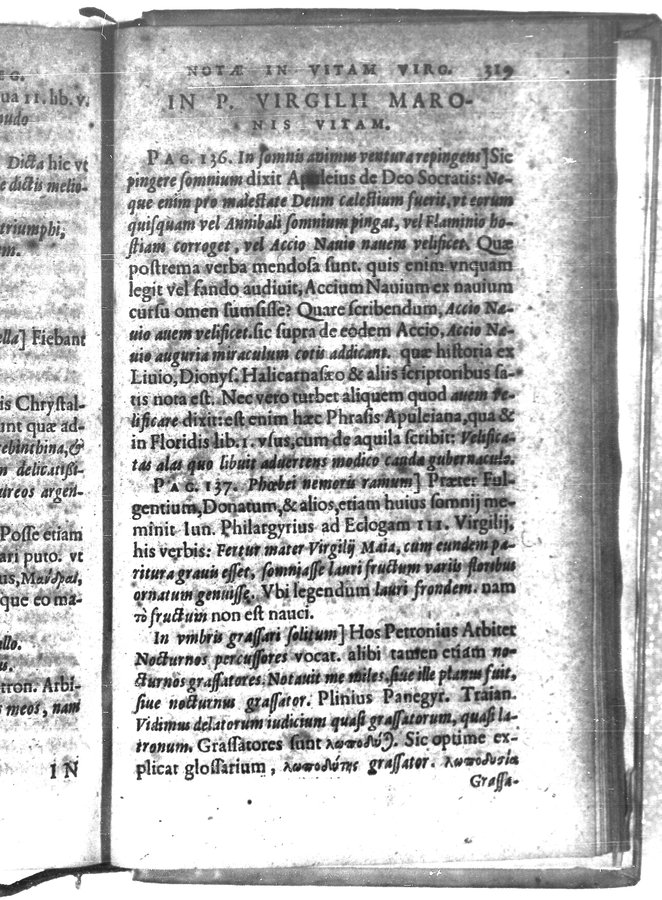 EG.
ua 11. lib. v.
nudo
Dicta hic vt
e dictis melio-
triumphi,
m.
ella] Fiebant
is Chrystal-
unt quæ ad-
rebinthina, &
n delicatißi-
ureos argen-
Posse etiam
ari puto. vt
us, Μανδραὶ,
que eo ma-
llo.
us.
tron. Arbi-
s meos, nam
IN
NOTÆ IN VITAM VIRG. 319
IN P. VIRGILII MARO-
NIS VITAM.
PAG. 136. In somnis animus ventura repingens] Sic
pingere somnium dixit Apuleius de Deo Socratis: Ne-
que enim pro maiestate Deum cælestium fuerit, vt eorum
quisquam vel Annibali somnium pingat, vel Flaminio ho-
stiam corroget, vel Accio Nauio nauem velificet. Quæ
postrema verba mendosa sunt. quis enim vnquam
legit vel fando audiuit, Accium Nauium ex nauium
cursu omen sumsisse? Quare scribendum, Accio Na-
uio auem velificet. sic supra de eodem Accio, Accio Na-
uio auguria miraculum cotis addicant. quæ historia ex
Liuio, Dionys. Halicarnasæo & aliis scriptoribus sa-
tis nota est. Nec vero turbet aliquem quod auem ve-
lificare dixit: est enim hæc Phrasis Apuleiana, qua &
in Floridis lib. 1. vsus, cum de aquila scribit: Velifica-
tas alas quo libuit aduertens modico cauda gubernaculo.
PAG. 137. Phœbei nemoris ramum] Præter Ful-
gentium, Donatum, & alios, etiam huius somnij me-
minit Iun. Philargyrius ad Eclogam III. Virgilij,
his verbis: Fertur mater Virgilij Maia, cum eundem pa-
ritura grauis esset, somniasse lauri fructum variis floribus
ornatum genuisse. Vbi legendum lauri frondem. nam
τὸ fructum non est nauci.
In vmbris grassari solitum] Hos Petronius Arbiter
Nocturnos percussores vocat. alibi tamen etiam no-
cturnos grassatores: Notauit me miles, siue ille planus fuit,
siue nocturnus grassator. Plinius Panegyr. Traian.
Vidimus delatorum iudicium quasi grassatorum, quasi la-
tronum. Grassatores sunt λωποδύται. Sic optime ex-
plicat glossarium, λωποδύτης grassator. λωποδυσία
Grassa-